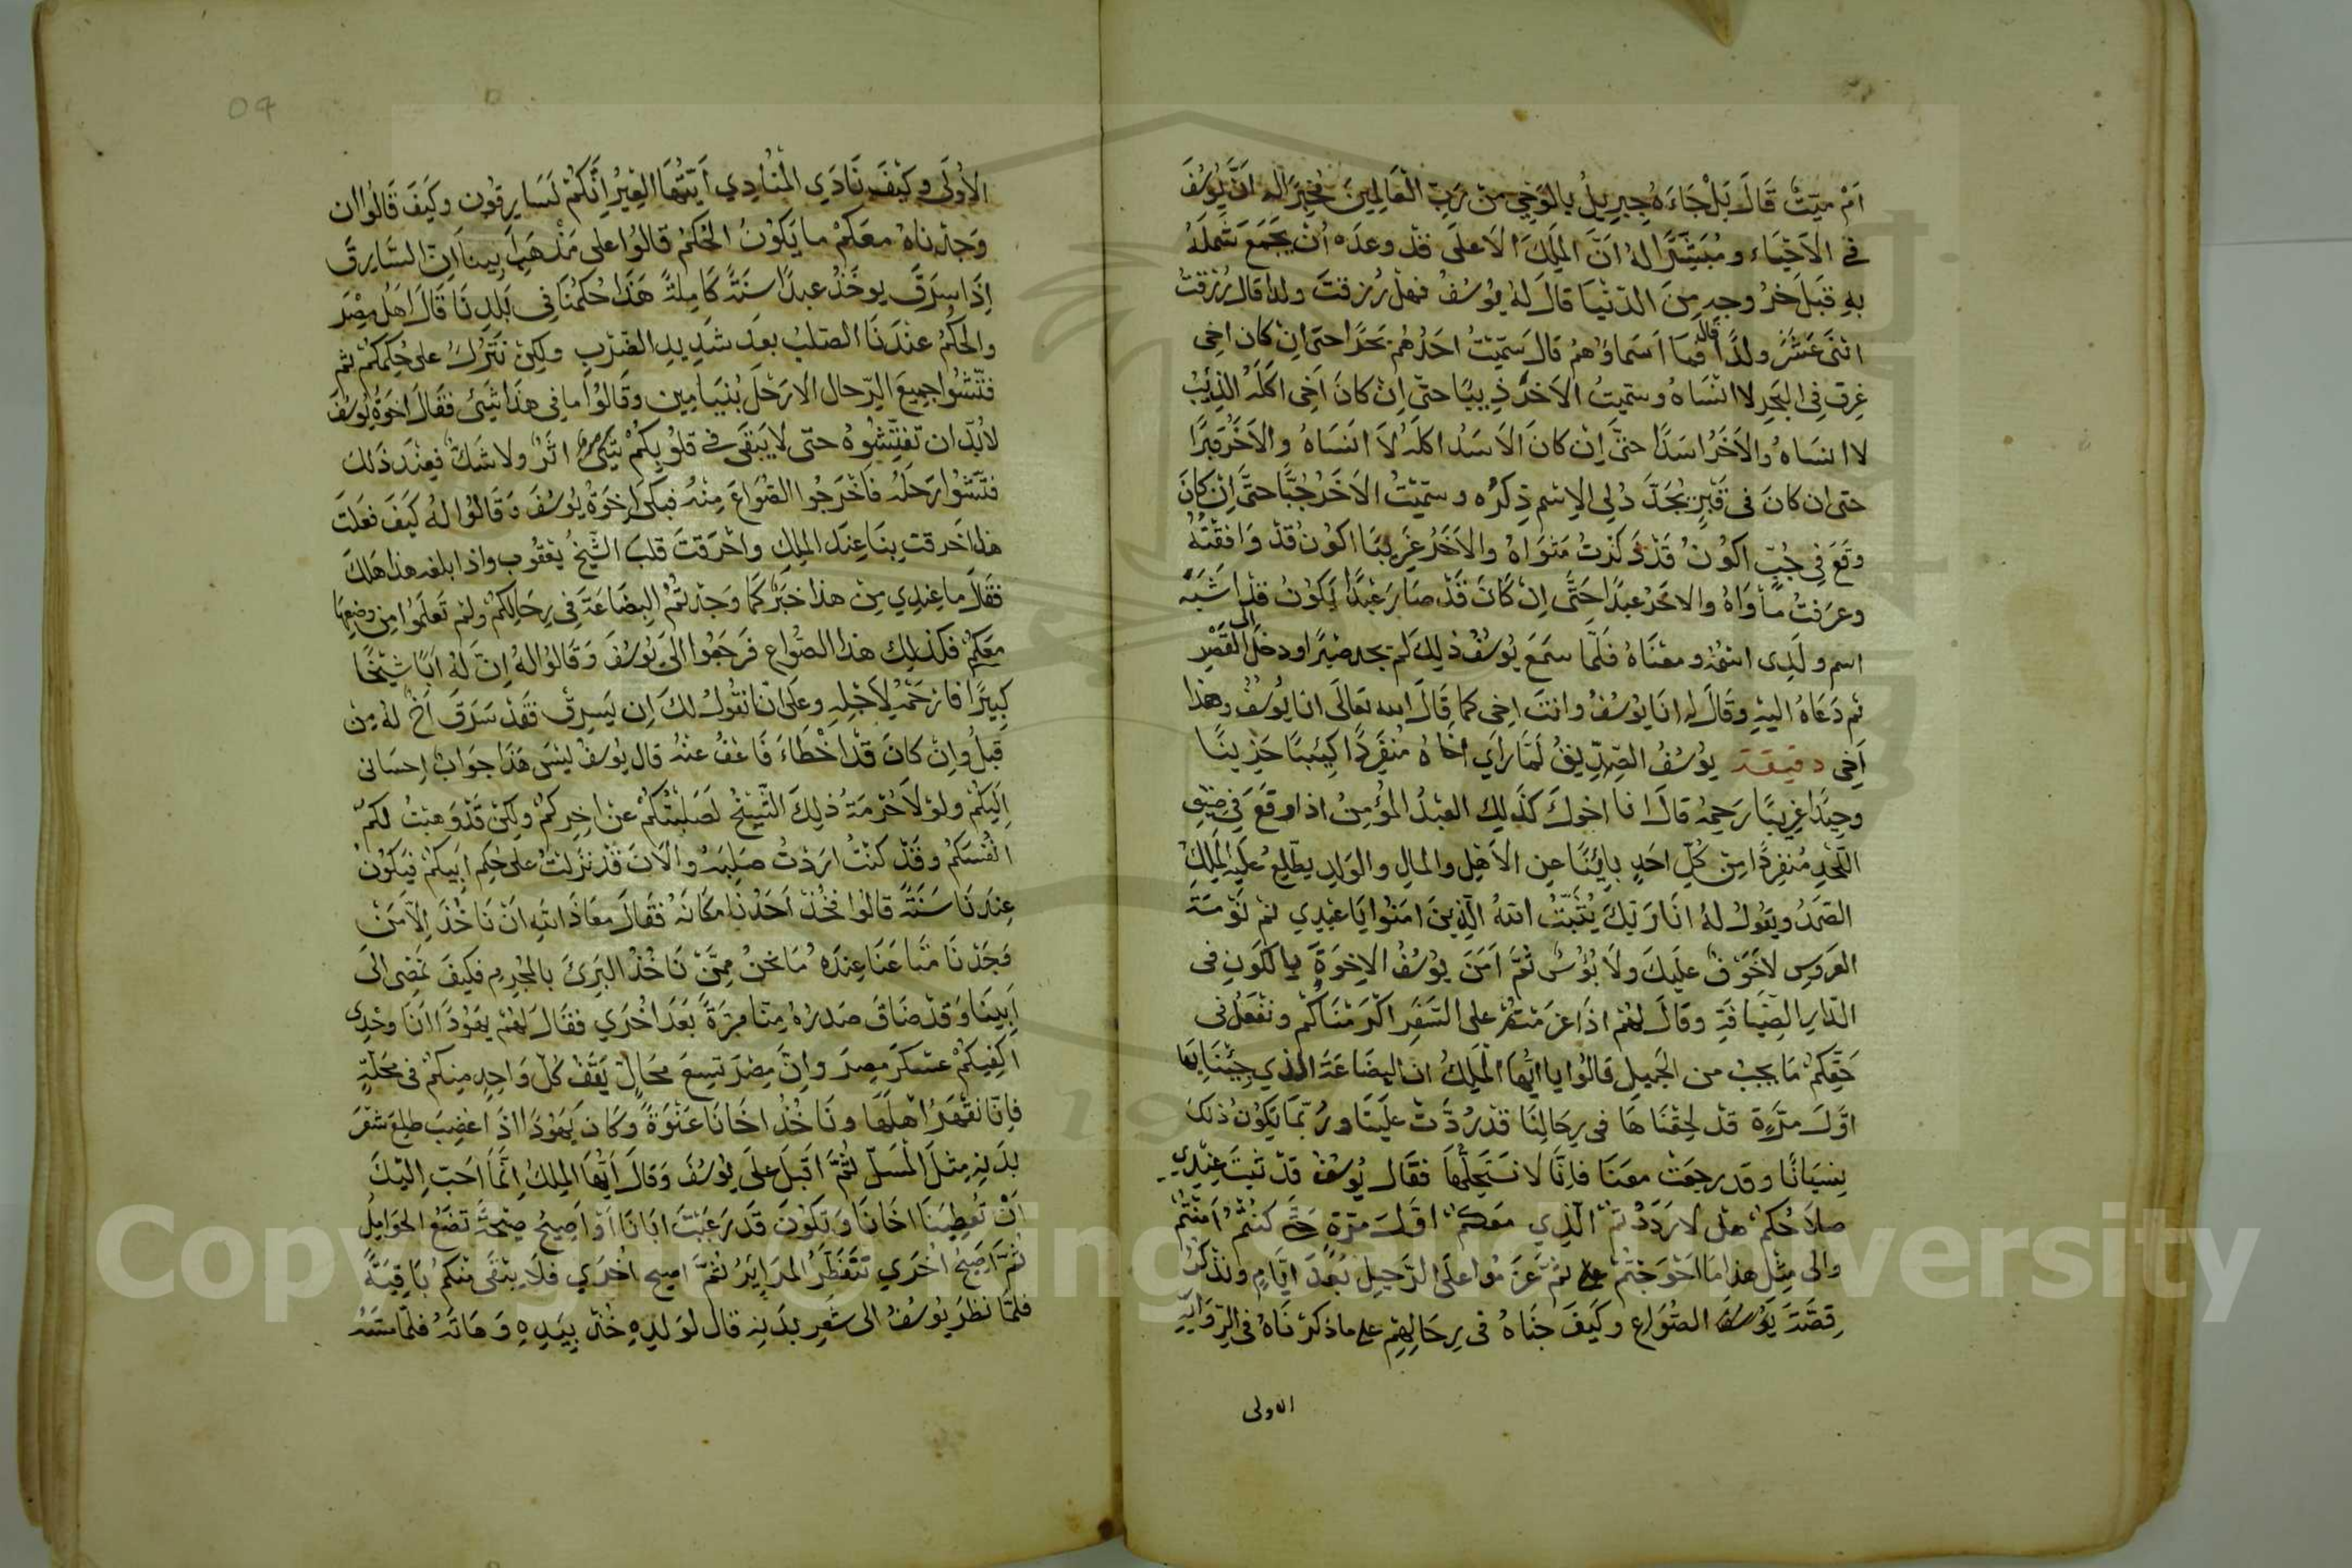 اَمْ ميّتْ قَالَ بَلْ جَاءَهُ جِبرِيلُ بالوَحْي مِنْ رَبِّ الْعَالِمينَ مُخْبِرًا لهُ انَّ يُوسُفَ
فى الاَحْيَاءِ ومُبَشِّرًا لهُ انَّ الملِكَ الاَعلَى قدْ وعدَه اَنْ يجْمَعَ شَملَهُ
بهِ قبَلَ خرُوجهِ مِنَ الدّنْيَا قالَ لهُ يوُسُفْ فهَلْ رُزِقتَ ولدا قال رُزقْتُ
اثنَى عَشَرَ ولدًا قال فما اَسَماؤهمْ قالَ سَمّيْتُ اَحَدُهُمْ بَحْرًا حتى اِنْ كان اخِى
غرِق فِى البَحرِ لا انْسَاهُ وسمّيتُ الاَخَرُ ذِيبًا حتىّ اِنْ كانَ اَخِى اكَلَهُ الذِئبُ
لا انسَاهُ والاَخَرُ اسَدًا حتىَّ اِنْ كانَ الاَسَدُ اكلَهُ لاَ انَسَاهُ والاَخَرُ قبرًا
حتى ان كانَ فى قَبْرٍ يُجَدَّدُ لِى الاِسْمِ ذِكرُه وسمّيْتُ الاَخَرُ جُبًّا حتىَّ اِنْ كانَ
وَقَعَ فِى جُبّ اكوُنُ قَدْ ذَكَرْتُ مَثوَاهُ والاَخَرُ غَرِيبًا اكوُن قَدْ وَافقْتُهُ
وعرَفتُ مأوَاهُ والاخَرُ عبدًا حَتَّى اِنْ كَانَ قَدْ صَارَ عَبْدًا يَكوُن قدْ اَشبَهَ
اسم ولَدِى اسْمُهُ ومعْنَاهُ فَلَمّا سمَعَ يوُسُفْ ذلِكَ لَم يجد صبْرًا ودخلَ الى القَصْرِ
ثم دَعَاهُ اليْهِ وقَالَ لهِ انَا يوُسُفُ وانتَ اخِى كما قَالَ الله تعَالَى انا يوُسُفُ وهذا
اَخِى دقيقة يوُسُفُ الصِّدِّيقُ لَمّا رَاَي اخَاهُ مُنفَرِدًا كِئيبًا حَزِينًا
وحِيدًا غرِيبًا رَحِمَهُ قالَ انا اخوكَ كَذَلِك العَبْدُ المُؤمِنُ اذا وقَعَ فى ضيْقِ
اللّحْدِ مُنفرِدًا مِنْ كُلّ احَدٍ بايِنًا عن الاَهْلِ والمالِ والوَلدِ يطّلِعُ علَيهِ المَلِكُ
الصّمَدُ ويَقوُلُ لهُ انَا رَبّكَ يُثَبّتُ اللهُ الّذِينَ امَنُوا يَا عَبْدِي نم نَوْمَةَ
العَروسِ لاخَوْفٌ علَيكَ ولَا بُؤسٌ ثمَّ اَمَنَ يوُسُفُ الاِخوَةَ بِالكَونِ فى
الدّارِ الضِّيَافَةِ وقَالَ لهُمْ اذا عزَمْتمُ على السَّفَرِ اكْرَمْنَاكُم ونفْعَلُ فى
حَقّكِمُ مَا يجبُ من الجَمِيلِ قالُوا يا ايُّها الْمَلِكُ ان البِضَاعَةَ الذي جِئنَا بِهَا
اوّلَ مرَّةٍ قد لحِقنَا هَا فى رِحَالِنَا قدْ رُدَّتْ علَينَا ورُبّما يَكوُنُ ذلكَ
نِسيَانًا وقد رجَعَتْ معَنَا فاِنّا لا نستَحِلُّها فقَال يوُسُفُ قدْ ثبَتَ عِنْدِي
صلاَحُكمُ هَلْ لا رَدَدْ تمُ الّذِي معَكمُ اوّلَ مرّةٍ حتى كنتُمْ اَمنْتُمْ
والى مِثلِ هذا مَا احْوَجْتُم ثمَّ عزَمُوا علَى الرَّحيلِ بَعْدَ ايَّامٍ ونذْكرُ
قِصَّةَ يوُسُفَ الصُّوَاعِ وكيَفَ جنَاهُ فى رِحَالِهِمْ على ما ذكرْنَاهُ فى الرِّوَايَةِ
الاولى
الأوُلَى وكيْفَ نَادَي المُنَادِي اَيّتُهَا العِيْرُ اِنّكمْ لَسَارِقوُن وكَيفَ قَالوُا ان
وَجدْناهُ معَكمْ ما يَكوُنُ الحُكمُ قالوُا على مَذْهَبِ اَبِينَا اِنّ السَّارِقَ
اِذَا سرَقَ يوخَذُ عبدًا سَنَةً كَامِلةً هَذَا حُكمُنَا فى بَلَدِنَا قَالَ اهَلُ مِصْرَ
والحكمُ عنْدَنَا الصَّلبُ بعَدَ شدِيدِ الضّرْبِ ولكِنْ نَتْرُكُ على حُكمِكمُ ثم
فتّشُوا جمِيعَ الرّحال الاَ رَحْلَ بُنيَامِين وقَالوُا ما فى هَذَا شَيئ فقَالَ اخوَةُ يوُسُفَ
لابُدّ ان تفتّشُوهُ حتى لا يَبقَى فى قلوُبِكمُ اثرٌ ولا شكٌ فعِنْدَ ذَلِكَ
فتّشُوا رَحلَهُ فَاخْرَجُوا الصُّوَاعَ مِنْهُ فبكَى اِخوَةُ يوُسُفَ وقَالوُا لهُ كيَفَ فعَلتَ
هذا خَرقتِ بِنَا عِندَ الملِكِ واحْرَقتَ قلبَ الشّيخُ يعقوُب واذا بلغه هذا هَلَكَ
فقَالَ ما عِنْدِي مِنْ هذا خَبَرٌ كَمَا وَجدْتُمُ البِضَاعَةَ فى رِحَالِكمُ ولم تعَلمَوُا من وضعِهَا
معَكمُ فكَذلِك هذا الصُّواع فَرَجَعُوا الى يوُسُفَ وَقَالوُا لهُ اِنّ لهُ اَبًا شيْخًا
كِبيرًا فارْحَمْهُ لاَجلِهِ وعلَى انّا نقوُلُ لكَ اِن يَسرِقْ فقَدْ سَرَقَ اَخٌ لهُ مِن
قبلُ واِنْ كانَ قدْ اخْطَاءَ فَاعْفُ عنْهُ قال يوُسُفُ ليْسَ هَذا جوَابٌ اِحسَانى
اِلَيكُمْ ولَوْلاَ حُرْمَةُ ذلِكَ الشّيْخِ لَصَلَبْتُكُمْ عنْ اخِرِكُمْ ولكِنْ قَدْ وَهَبْتُ لكمْ
انْفُسَكمُ وقَدْ كنْتُ ارَدْتُ صَلبَهُ والاَنَ قدْ نزَلتُ على حُكمِ اَبِيكمْ فيَكوُنُ
عِندَنَا سَنَةً قالوُا فخُذْ اَحَدَنَا مَكَانَهُ فقَالَ معَاذَ اللهِ انْ نَاخُذَ اِلاّ مَنْ
وَجَدْنَا متَاعَنَا عِندَهُ مَا نحْنُ مِمّنْ نَاخُذُ البَرِئَ بالمُجْرِمِ فكيَفَ نمضِى الىَ
اَبِينَا وَقدْ ضَاقَ صَدرُهُ مِنّا مرّةً بَعدَ اُخْرَي فقَالَ لهُمْ يَهوُدًا انَا وَحْدِى
اكفِيكُمْ عسْكَرَ مِصرَ واِنَّ مِصْرَ تسِعَ محَالٍ يَقفْ كلّ وَاحِدٍ مِنكمْ فى مَحَلّةٍ
فاِنّا نقْهَرُ اهْلهَا ونَاخُذُ اخَانَا عَنْوَةً وكَان يَهوُدًا اذَا غضِبَ طلَعَ شعْرَ
بدَنِهِ مِثلَ الْمَسَلِّ ثُمَّ اقبَلَ علَى يوُسُفَ وَقالَ اَيُّهَا المَلِكُ اِنّمَا احَبّ اِلَيْكَ
اَنْ تُعْطِيَنَا اخَانَا وتَكوُنَ قَدَرَغبْتَ ابَانَا اَوْ اَصِيحُ صيْحَةً تضَعُ الحوَامِلُ
ثُمّ اَصِيحُ اُخْرَي تتَفَطّرُ المَرَايِرُ ثُمَّ اصِيح اُخْرَي فَلَا يَبْقَى مِنكمُ بَاقِيَةً
فلمَّا نظَرَ يوُسُفُ الى شعَرِ بدَنِهِ قال لوَلدِهِ خُذْ بِيَدِهِ وَهَاتهُ فلمّا مَسَّهُ
Copyright © King Saud University